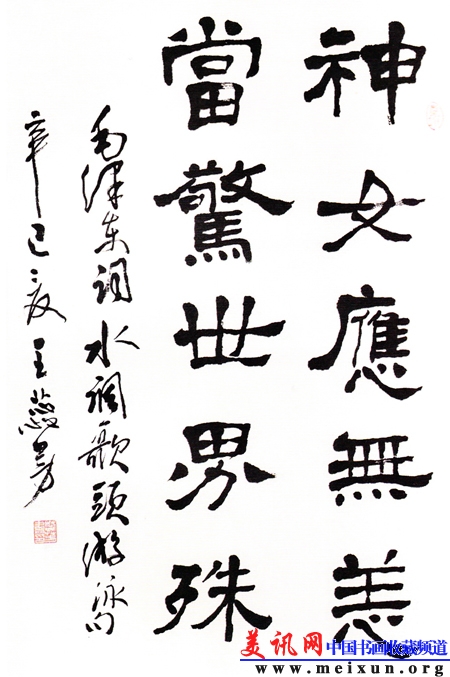 神女應無恙
當驚世界殊
毛澤东詞水調歌頭游泳句
辛巳夏王
美讯网 中国书画收藏频道
www.meixun.org